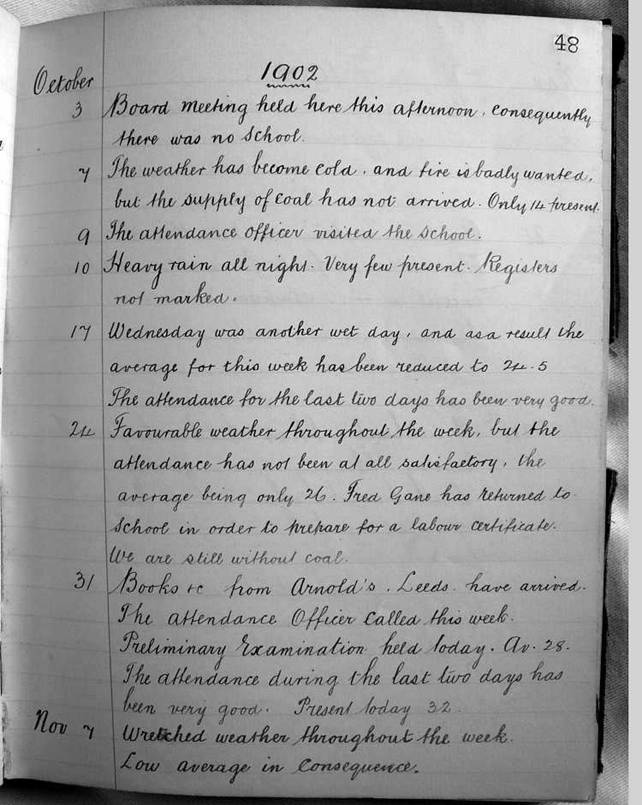 48
1902
October
3 Board meeting held here this afternoon, consequently
there was no School.
7 The weather has become cold, and fire is badly wanted,
but the supply of coal has not arrived. Only 14 present.
9 The attendance Officer visited the School.
10 Heavy rain all night. Very few present. Registers
not marked.
17 Wednesday was another wet day, and as a result the
average for this week has been reduced to 24.5
The attendance for the last two days has been very good.
24 Favourable weather throughout the week, but the
attendance has not been at all satisfactory, the
average being only 26. Fred Gane has returned to
School in order to prepare for a labour certificate.
We are still without coal.
31 Books &c from Arnold's, Leeds have arrived.
The attendance Officer called this week.
Preliminary Examination held today. Av. 28.
The attendance during the last two days has
been very good. Present today 32
Nov 7 Wretched weather throughout the week.
Low average in consequence.